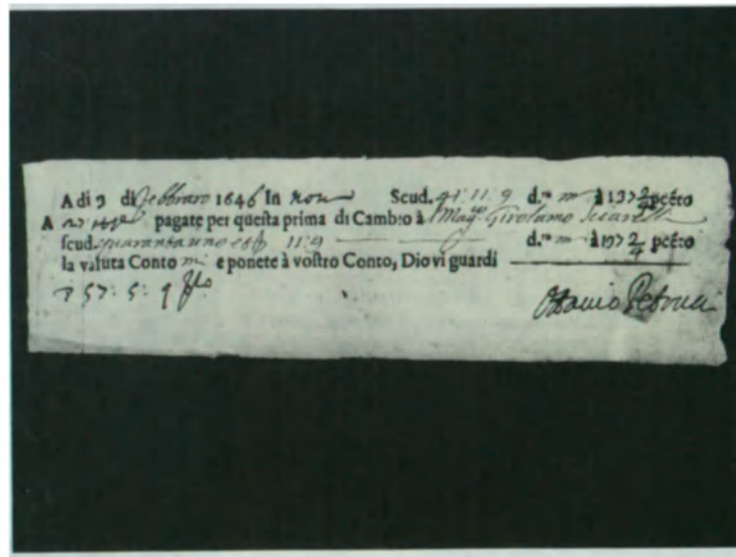 A di 9 di febbraro 1646 In Scud. 41: 11: 9 d. m à 137 2/4 pcéto
A pagate per questa prima di Cambio à l Mag.co Girolamo
scud. quaranta uno e ß 11:9 d. m à 137 2/4 pcéto
la valuta Conto m. e ponete à vostro Conto, Dio vi guardi
57: 5: 9
Ottavio Petrucci